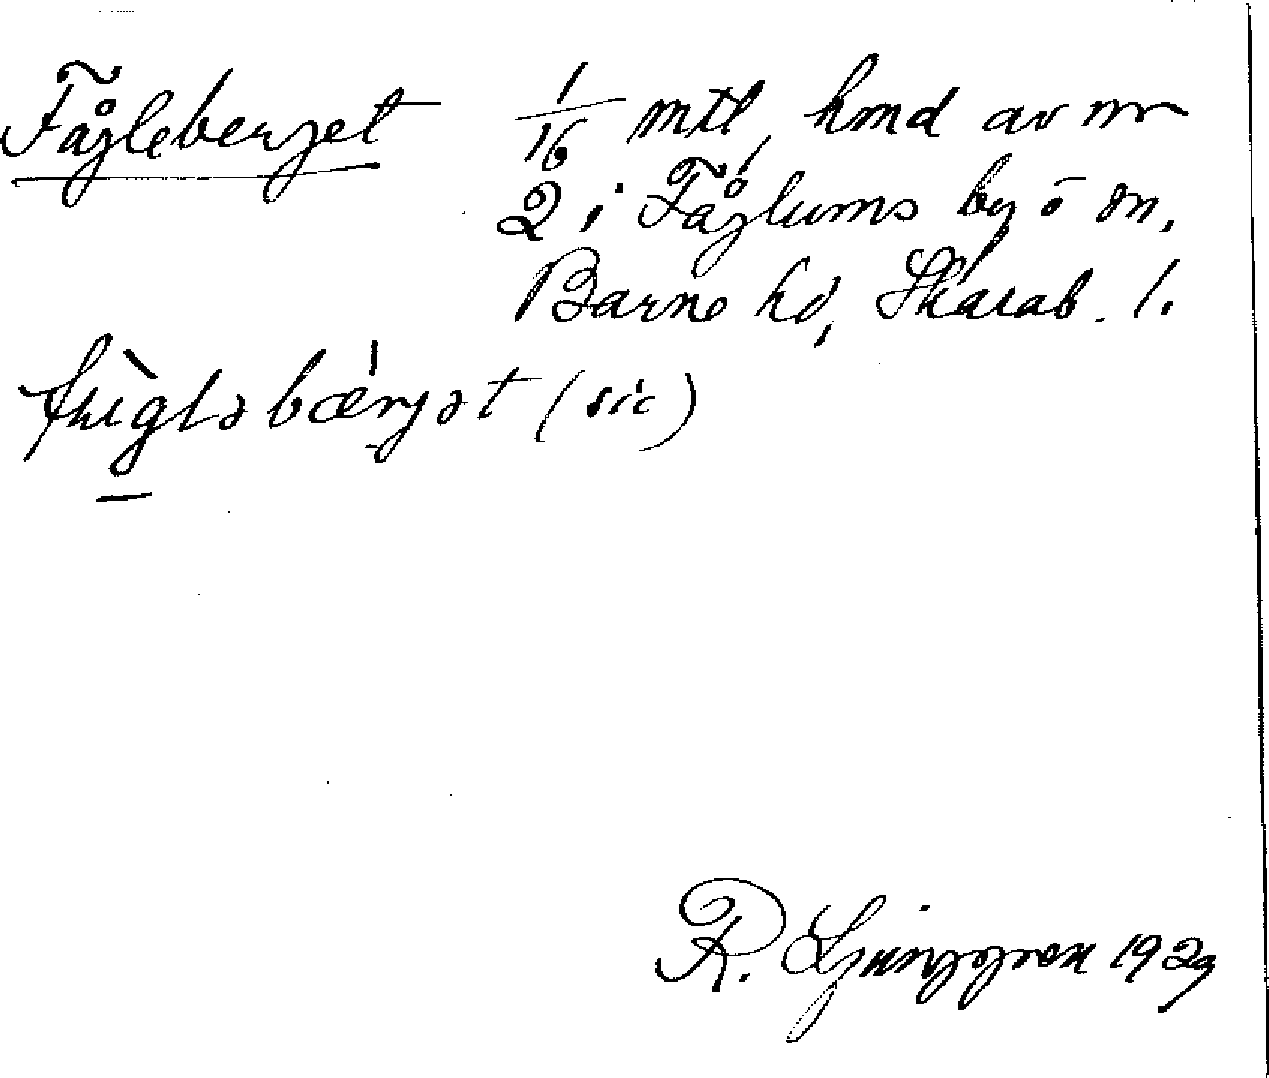 Fågleberget 1/16 mtl, hmd av nr
2 i Fåglums by o sn,
Barne hd, Skarab. l.
(sic)
R. Ljunggren 1923